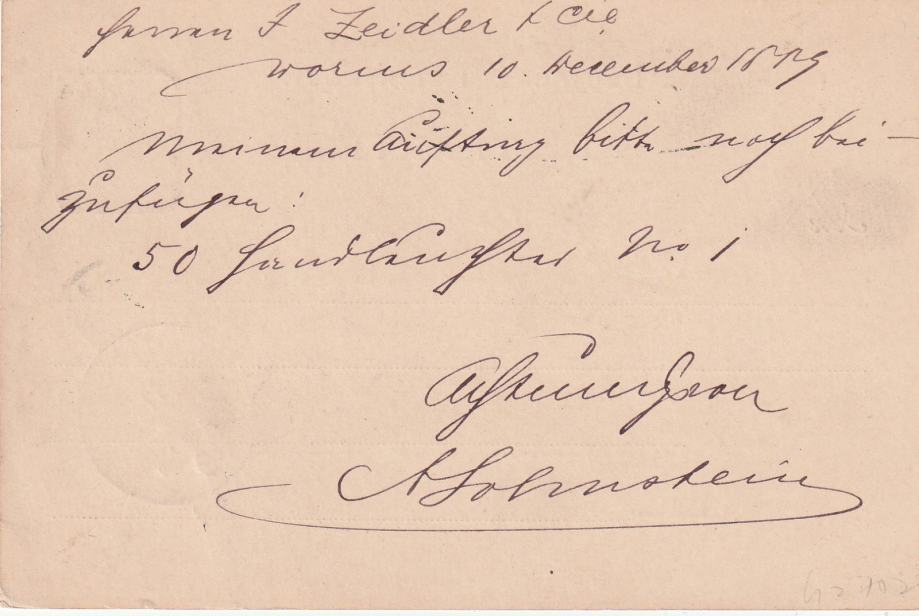 Herren J Zeidler & Cie
Worms 10. December 1879
Meinem Auftrag bitte noch bei-
zufügen:
50 Handleuchter No. 1
Achtungsvoll
A